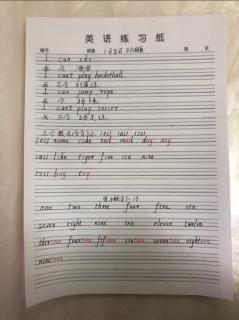 英语练习纸
编号 班级 1月3日
I can ski
我会滑雪
I can't play basketball.
我不会打篮球.
I can jump rope.
我会跳绳.
I can't play soccer.
我不会踢足球.
[eɪ] name cake tail mail day say
[aɪ] like tiger five ice nine
[ɔɪ] boy toy
one two three four five six
seven eight nine ten eleven twelve
thirteen fourteen fifteen sixteen seventeen eighteen
nineteen